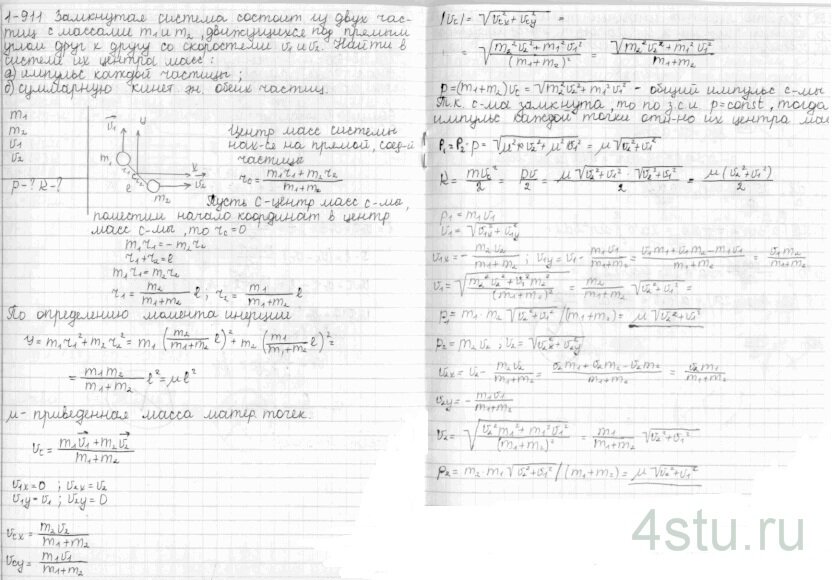 1-911 Замкнутая система состоит из двух час-
тиц с массами m1 и m2, движущихся под прямым
углом друг к другу со скоростями v1 и v2. Найти в
системе их центра масс:
а) импульс каждой частицы;
б) суммарную кинет. эн. обеих частиц.
m1
m2
v1
v2
p-? K-?
v1 y
m1 r1 r2 x
l v2
m2
Центр масс системы
нах-ся на прямой, соед-й
частицы
rc = (m1r1 + m2r2)/(m1+m2)
Пусть С-центр масс с-мы,
поместим начало координат в центр
масс с-мы, то rc=0
m1r1 = -m2r2
r1+r2 = l
m1r1 = m2r2
r1 = m2/(m1+m2) l ; r2 = m1/(m1+m2) l
По определению момента инерции
y = m1r1² + m2r2² = m1 (m2/(m1+m2) l)² + m2 (m1/(m1+m2) l)² =
= m1m2/(m1+m2) l² = μl²
μ - приведенная масса матер. точек.
vc = (m1v1 + m2v2)/(m1+m2)
v1x=0 ; v2x=v2
v1y=v1 ; v2y=0
vcx = m2v2/(m1+m2)
vcy = m1v1/(m1+m2)
|vc| = √(vcx² + vcy²) =
= √((m2²v2² + m1²v1²)/(m1+m2)²) = √(m2²v2² + m1²v1²)/(m1+m2)
p=(m1+m2)vc = √(m2²v2² + m1²v1²) - общий импульс с-мы
Т.к. с-ма замкнута, то по з.с.и p=const, тогда
импульс каждой точки отн-но их центра мас
P1 = P2 = p = √(μ²v2² + μ²v1²) = μ√(v2²+v1²)
K = mv²/2 = pv/2 = μ√(v2²+v1²)·√(v2²+v1²)/2 = μ(v2²+v1²)/2
p1 = m1v1
v1 = √(v1x² + v1y²)
v1x = - m2v2/(m1+m2) ; v1y = v1 - m1v1/(m1+m2) = (v1m1 + v1m2 - m1v1)/(m1+m2) = v1m2/(m1+m2)
v1 = √((m2²v2² + v1²m2²)/(m1+m2)²) = m2/(m1+m2) √(v2²+v1²) =
p1 = m1·m2 √(v2²+v1²)/(m1+m2) = μ√(v2²+v1²)
p2 = m2v2 ; v2 = √(v2x² + v2y²)
v2x = v2 - m2v2/(m1+m2) = (v2m1 + v2m2 - v2m2)/(m1+m2) = v2m1/(m1+m2)
v2y = - m1v1/(m1+m2)
v2 = √((v2²m1² + m1²v1²)/(m1+m2)²) = m1/(m1+m2) √(v2²+v1²)
p2 = m2·m1 √(v2²+v1²)/(m1+m2) = μ√(v2²+v1²)
4stu.ru